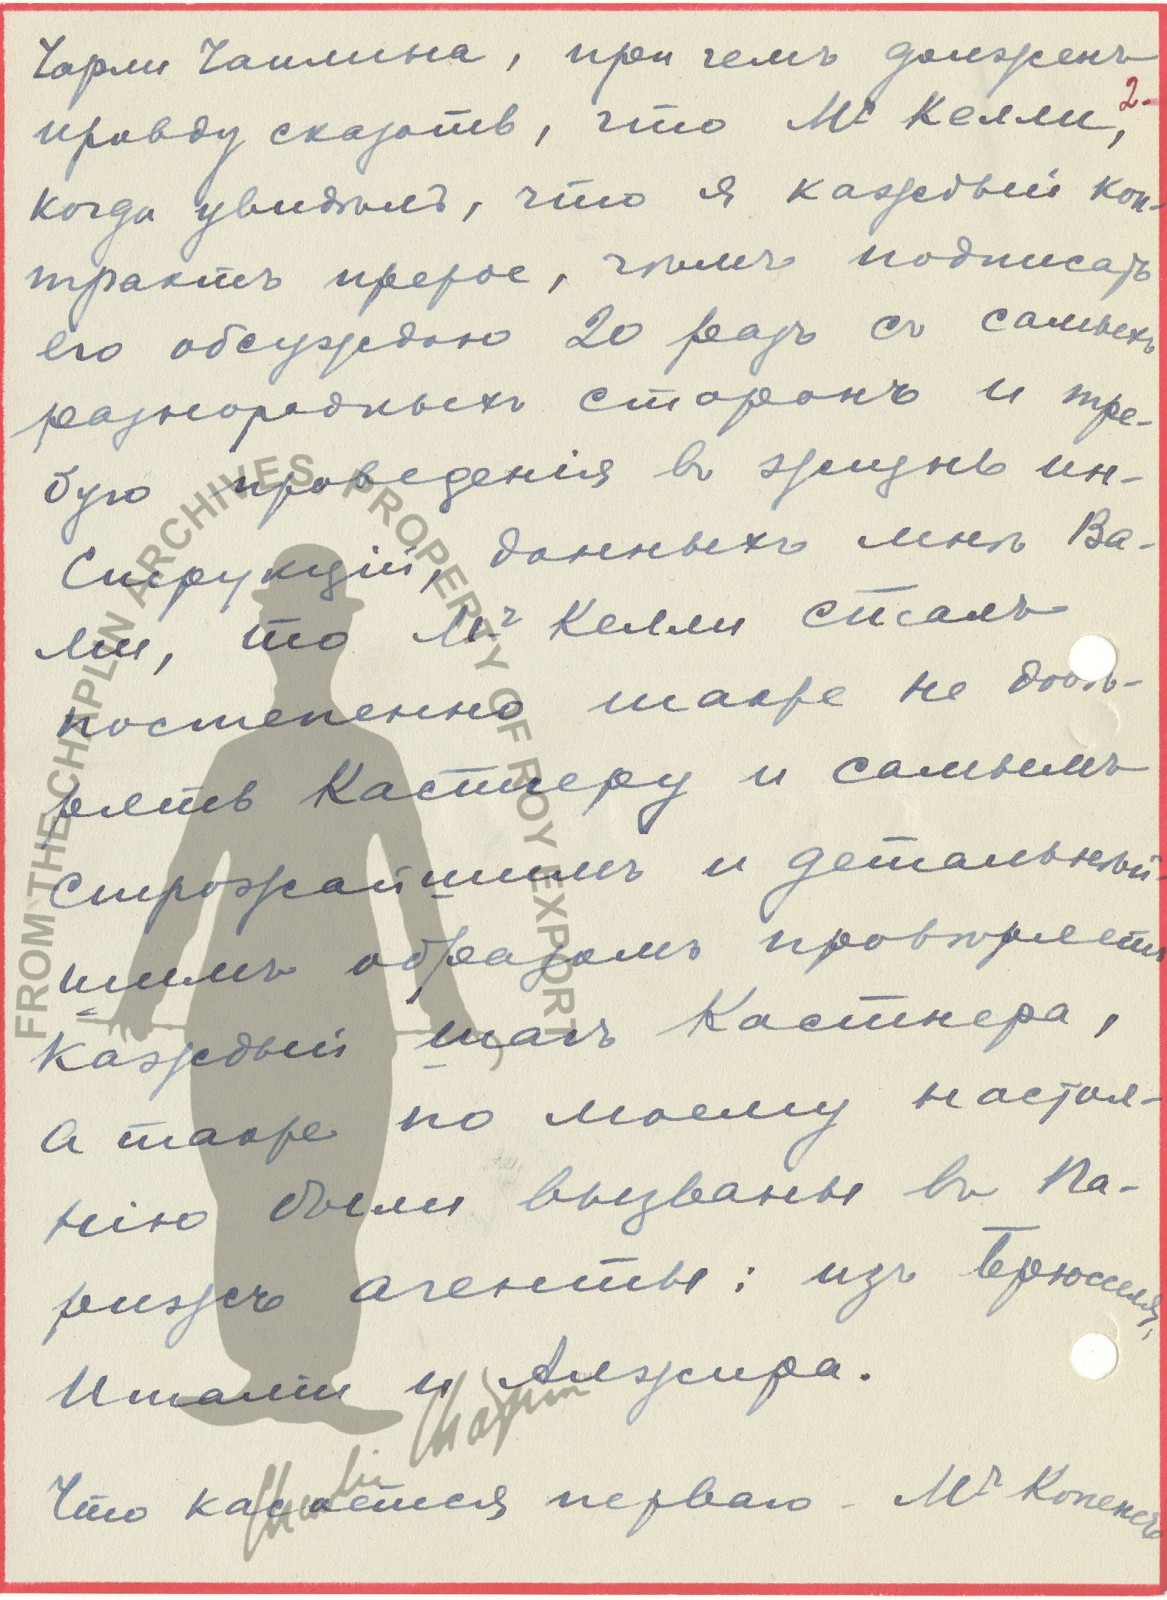 Чарли Чаплина, при чемъ долженъ
2-
правду сказать, что Mr Келли,
когда увидѣлъ, что я каждый кон-
трактъ прежде, чѣмъ подписать
его обсуждаю 20 разъ съ самыхъ
разнородныхъ сторонъ и тре-
бую проведенія въ жизнь ин-
струкцій, данныхъ мнѣ Ва-
ми, то Mr Келли сталъ
постепенно также не довѣ-
рять Кастнеру и самымъ
строжайшимъ и детальнѣй-
шимъ образомъ провѣряетъ
каждый шагъ Кастнера,
а также по моему настоя-
нію были вызваны въ Па-
рижъ агенты: изъ Брюсселя,
Италіи и Алжира.
Что касается перваго - Mr Копенсъ
FROM THE CHAPLIN ARCHIVES PROPERTY OF ROY EXPORT
Charlie Chaplin